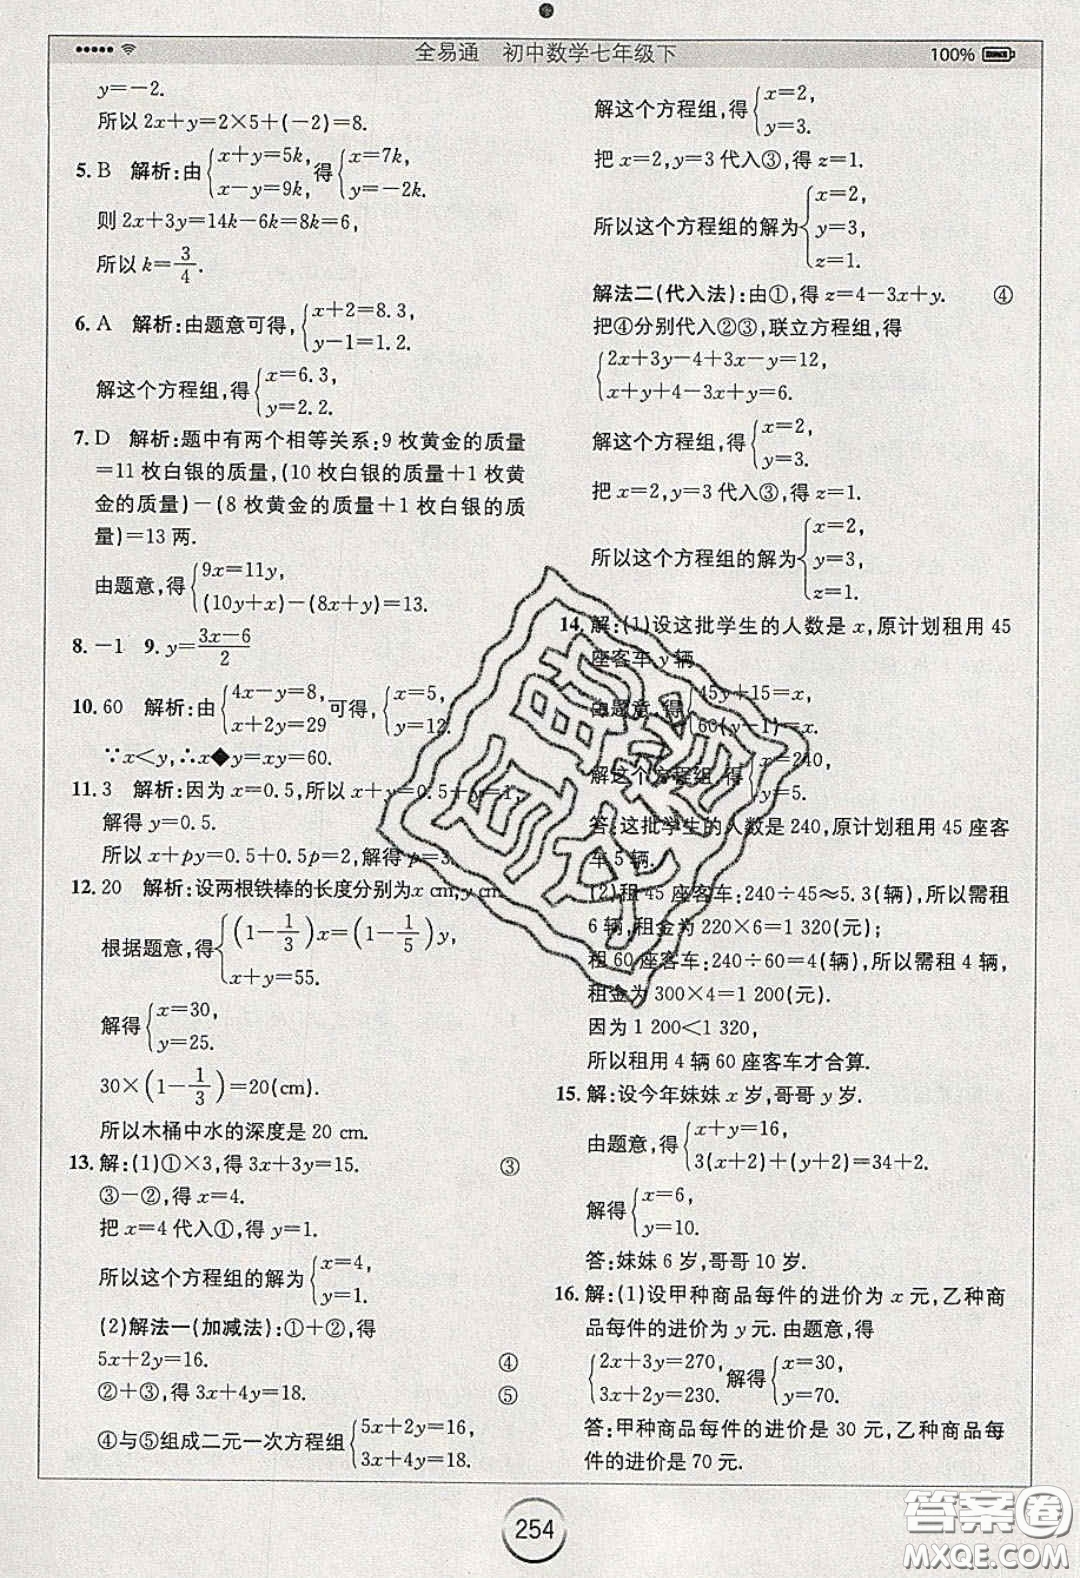 全易通 初中数学七年级下 100%
y=-2.
所以 2x+y=2×5+(-2)=8.
5. B 解析:由{x+y=5k, x-y=9k, 得{x=7k, y=-2k.
则 2x+3y=14k-6k=8k=6,
所以 k=3/4.
6. A 解析:由题意可得,{x+2=8.3, y-1=1.2.
解这个方程组,得{x=6.3, y=2.2.
7. D 解析:题中有两个相等关系:9 枚黄金的质量
=11 枚白银的质量,(10 枚白银的质量+1 枚黄
金的质量)-(8 枚黄金的质量+1 枚白银的质
量)=13 两.
由题意,得{9x=11y, (10y+x)-(8x+y)=13.
8. -1 9. y=(3x-6)/2
10. 60 解析:由{4x-y=8, x+2y=29 可得,{x=5, y=12.
∵x<y,∴x◆y=xy=60.
11. 3 解析:因为 x=0.5,所以 x+y=0.5+y=1,
解得 y=0.5.
所以 x+py=0.5+0.5p=2,解得 p=3.
12. 20 解析:设两根铁棒的长度分别为 x cm,y cm
根据题意,得{(1-1/3)x=(1-1/5)y, x+y=55.
解得{x=30, y=25.
30×(1-1/3)=20(cm).
所以木桶中水的深度是 20 cm.
13. 解:(1)①×3,得 3x+3y=15. ③
③-②,得 x=4.
把 x=4 代入①,得 y=1.
所以这个方程组的解为{x=4, y=1.
(2)解法一(加减法):①+②,得
5x+2y=16. ④
②+③,得 3x+4y=18. ⑤
④与⑤组成二元一次方程组{5x+2y=16, 3x+4y=18.
解这个方程组,得{x=2, y=3.
把 x=2,y=3 代入③,得 z=1.
所以这个方程组的解为{x=2, y=3, z=1.
解法二(代入法):由①,得 z=4-3x+y. ④
把④分别代入②③,联立方程组,得
{2x+3y-4+3x-y=12, x+y+4-3x+y=6.
解这个方程组,得{x=2, y=3.
把 x=2,y=3 代入③,得 z=1.
所以这个方程组的解为{x=2, y=3, z=1.
14. 解:(1)设这批学生的人数是 x,原计划租用 45
座客车 y 辆
由题意,得{45y+15=x, 60(y-1)=x.
解这个方程组,得{x=240, y=5.
答:这批学生的人数是 240,原计划租用 45 座客
车 5 辆.
(2)租 45 座客车:240÷45≈5.3(辆),所以需租
6 辆,租金为 220×6=1 320(元);
租 60 座客车:240÷60=4(辆),所以需租 4 辆,
租金为 300×4=1 200(元).
因为 1 200<1 320,
所以租用 4 辆 60 座客车才合算.
15. 解:设今年妹妹 x 岁,哥哥 y 岁.
由题意,得{x+y=16, 3(x+2)+(y+2)=34+2.
解得{x=6, y=10.
答:妹妹 6 岁,哥哥 10 岁.
16. 解:(1)设甲种商品每件的进价为 x 元,乙种商
品每件的进价为 y 元. 由题意,得
{2x+3y=270, 3x+2y=230. 解得{x=30, y=70.
答:甲种商品每件的进价是 30 元,乙种商品每
件的进价是 70 元.
254
答案圈
MXQE.COM